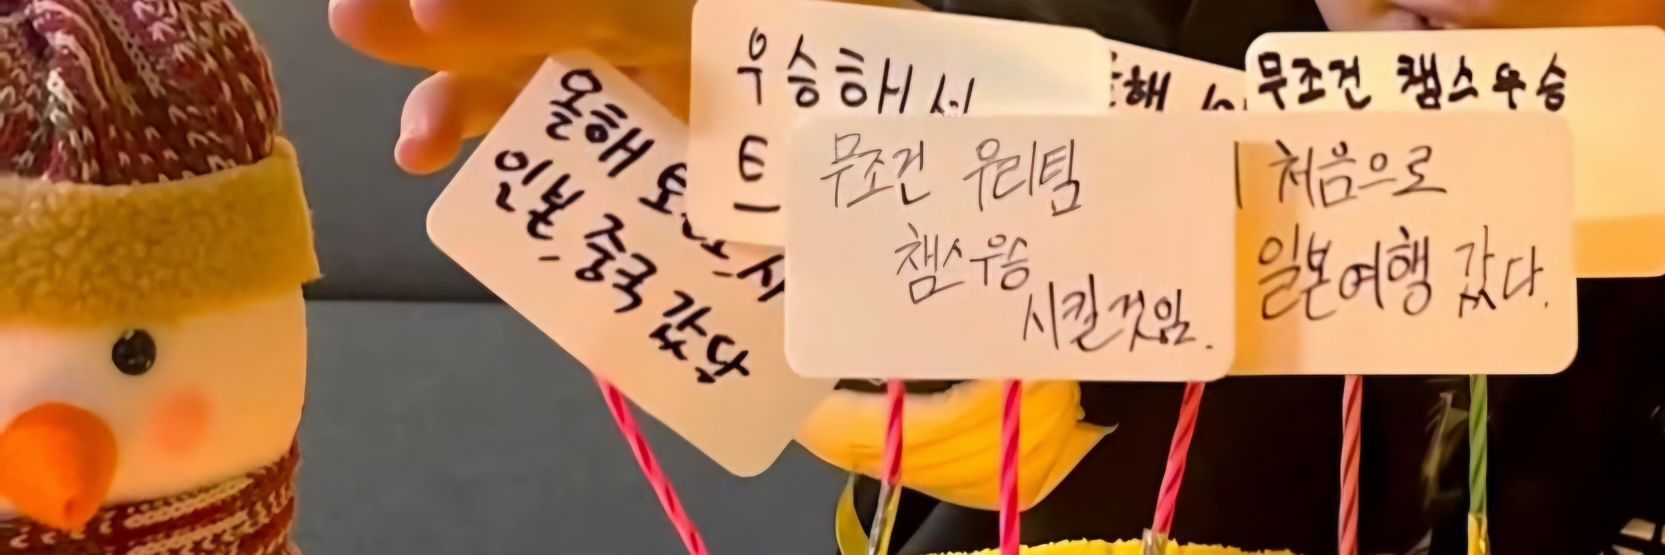 올해
일본, 중국 갔다
우승해서
트
해
무조건 챔스우승
무조건 우리팀
챔스우승
시킬것임.
처음으로
일본여행 갔다.